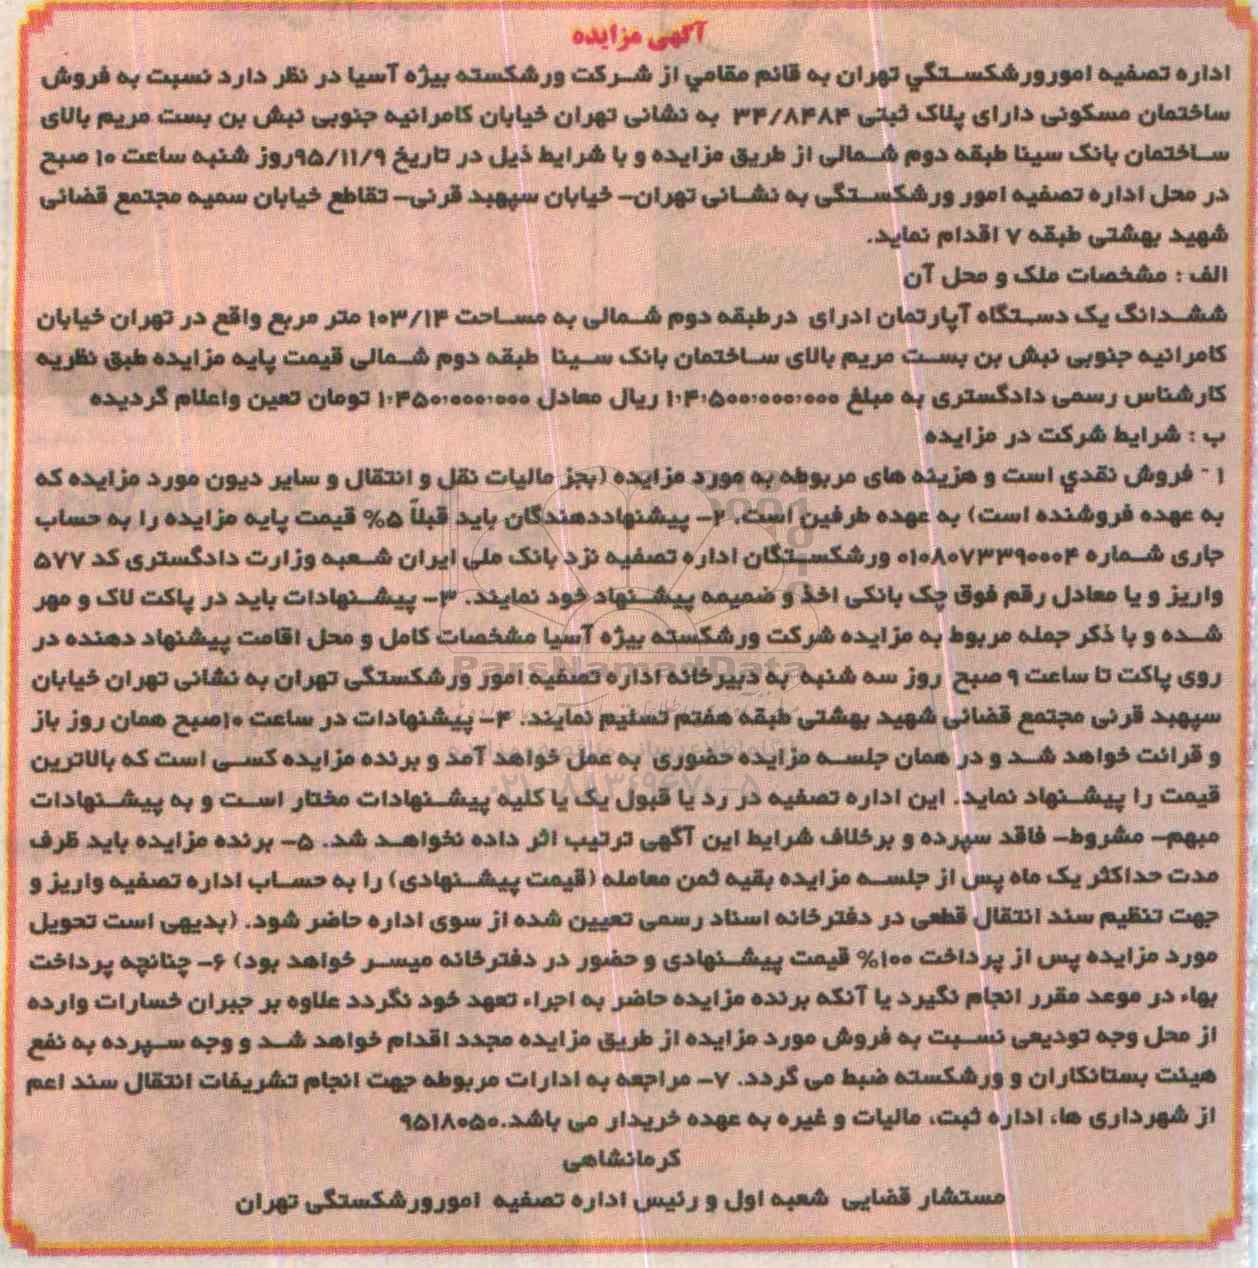 آگهی مزایده
اداره تصفیه امورورشکستگي تهران به قائم مقامي از شرکت ورشکسته بیژه آسیا در نظر دارد نسبت به فروش
ساختمان مسکونی دارای پلاک ثبتی ۳۴/۸۴۸۴ به نشانی تهران خیابان کامرانیه جنوبی نبش بن بست مریم بالای
ساختمان بانک سینا طبقه دوم شمالی از طریق مزایده و با شرایط ذیل در تاریخ ۹۵/۱۱/۹روز شنبه ساعت ۱۰ صبح
در محل اداره تصفیه امور ورشکستگی به نشانی تهران– خیابان سپهبد قرنی– تقاطع خیابان سمیه مجتمع قضائی
شهید بهشتی طبقه ۷ اقدام نماید.
الف : مشخصات ملک و محل آن
ششدانگ یک دستگاه آپارتمان ادرای درطبقه دوم شمالی به مساحت ۱۰۳/۱۴ متر مربع واقع در تهران خیابان
کامرانیه جنوبی نبش بن بست مریم بالای ساختمان بانک سینا طبقه دوم شمالی قیمت پایه مزایده طبق نظریه
کارشناس رسمی دادگستری به مبلغ ریال معادل تومان تعین واعلام گردیده
ب : شرایط شرکت در مزایده
۱ - فروش نقدي است و هزینه های مربوطه به مورد مزایده (بجز مالیات نقل و انتقال و سایر دیون مورد مزایده که
به عهده فروشنده است) به عهده طرفین است. ۲– پیشنهاددهندگان باید قبلاً ۵% قیمت پایه مزایده را به حساب
جاری شماره ۰۱۰۸۰۷۳۳۹۰۰۰۴ ورشکستگان اداره تصفیه نزد بانک ملی ایران شعبه وزارت دادگستری کد ۵۷۷
واریز و یا معادل رقم فوق چک بانکی اخذ و ضمیمه پیشنهاد خود نمایند. ۳– پیشنهادات باید در پاکت لاک و مهر
شده و با ذکر جمله مربوط به مزایده شرکت ورشکسته بیژه آسیا مشخصات کامل و محل اقامت پیشنهاد دهنده در
روی پاکت تا ساعت ۹ صبح روز سه شنبه به دبیرخانه اداره تصفیه امور ورشکستگی تهران به نشانی تهران خیابان
سپهبد قرنی مجتمع قضائی شهید بهشتی طبقه هفتم تسلیم نمایند. ۴– پیشنهادات در ساعت ۱۰صبح همان روز باز
و قرائت خواهد شد و در همان جلسه مزایده حضوری به عمل خواهد آمد و برنده مزایده کسی است که بالاترین
قیمت را پیشنهاد نماید. این اداره تصفیه در رد یا قبول یک یا کلیه پیشنهادات مختار است و به پیشنهادات
مبهم– مشروط– فاقد سپرده و برخلاف شرایط این آگهی ترتیب اثر داده نخواهد شد. ۵– برنده مزایده باید ظرف
مدت حداکثر یک ماه پس از جلسه مزایده بقیه ثمن معامله (قیمت پیشنهادی) را به حساب اداره تصفیه واریز و
جهت تنظیم سند انتقال قطعی در دفترخانه اسناد رسمی تعیین شده از سوی اداره حاضر شود. (بدیهی است تحویل
مورد مزایده پس از پرداخت ۱۰۰% قیمت پیشنهادی و حضور در دفترخانه میسر خواهد بود) ۶– چنانچه پرداخت
بهاء در موعد مقرر انجام نگیرد یا آنکه برنده مزایده حاضر به اجراء تعهد خود نگردد علاوه بر جبران خسارات وارده
از محل وجه تودیعی نسبت به فروش مورد مزایده از طریق مزایده مجدد اقدام خواهد شد و وجه سپرده به نفع
هیئت بستانکاران و ورشکسته ضبط می گردد. ۷– مراجعه به ادارات مربوطه جهت انجام تشریفات انتقال سند اعم
از شهرداری ها، اداره ثبت، مالیات و غیره به عهده خریدار می باشد.۹۵۱۸۰۵۰
کرمانشاهی
مستشار قضایی شعبه اول و رئیس اداره تصفیه امورورشکستگی تهران
ParsNamadData
۰۲۱-۸۸۳۴۹۶۷۰-۵